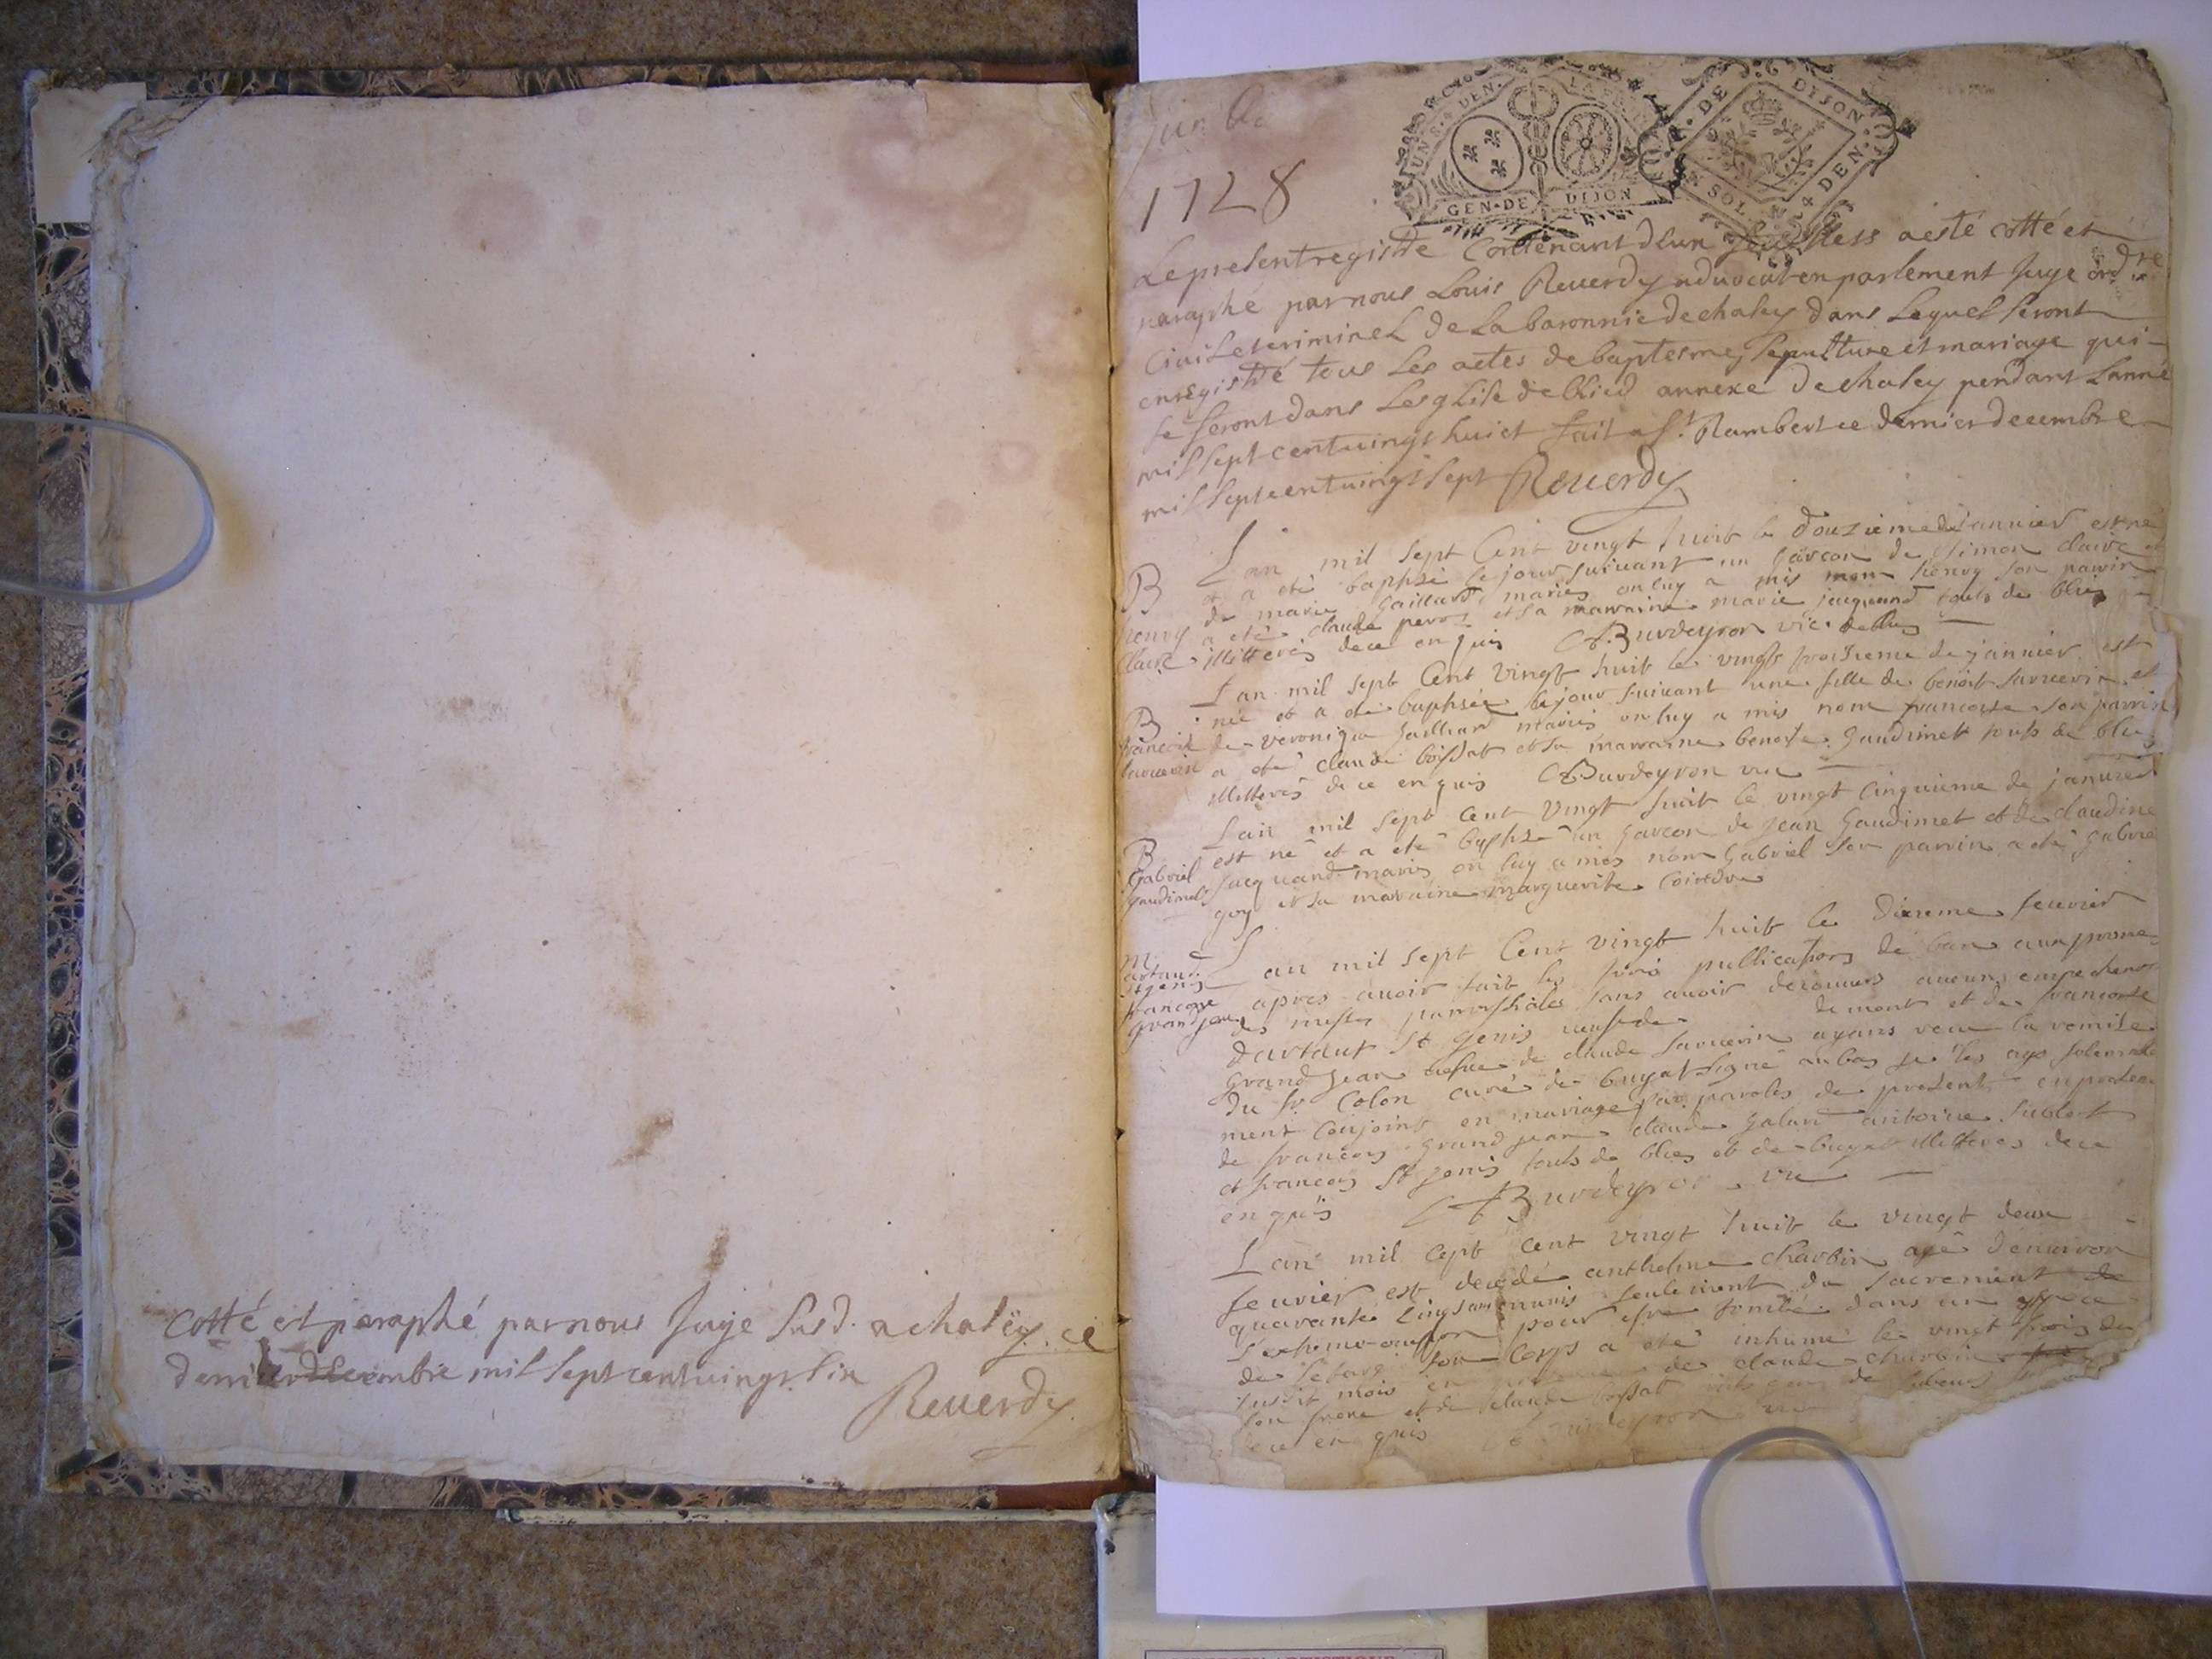 Cotté et paraphé par nous Juge Susd. a chaley ce
dernier decembre mil Sept cent vingt Six
Reuerdy
1728
GEN·DE DIJON
DE DIJON
SOL
DEN
Le present registre Contenant d'un seul a esté cotté et
paraphé par nous Louis Reuerdy aduocat en parlement Juge ordre
Ciuil et criminel de La baronnie de chaley dans Lequel Seront
enregistré tous Les actes de baptesme Sepulture et mariage qui
Se feront dans Lesglise de Blied annexe de chaley pendant Lanné
mil Sept cent vingt huict fait a St. Rambert ce dernier decembre
mil Sept cent vingt Sept Reuerdy
Lan mil sept Cent vingt huit le douzieme de januier est né
B et a eté baptisé le jour suiuant un garcon de Simon claire et
de marie gaillard mariés on luy a mis nom henry son parrin
henry a eté claude peroz et sa marraine marie jacquand touts de blies
Claire illitterés de ce enquis Burdeyron vic. de blies
Lan mil sept Cent vingt huit le vingt troisieme de januier est
B née et a eté baptisée le jour suiuant une fille de benoit sauuerin et
francoise de veronique gaillard mariés on luy a mis nom francoise son parrin
sauuerin a eté claude boissat et sa marraine benoite gaudimet touts de blies
illitterés de ce enquis Burdeyron vic
Lan mil sept cent vingt huit le vingt cinquieme de januier
B est né et a eté baptisé un garcon de jean gaudimet et de claudine
Gabriel jacquand mariés on luy a mis nom gabriel son parrin a eté gabriel
gaudimet goy et sa marraine marguerite Cointdre
M Lan mil sept Cent vingt huit le dixieme feurier
artaud
St genis apres auoir fait les trois publications de bans aux prones
francoise
grandjean des messes parroissiales sans auoir decouuers aucuns empechemens
dartaut St genis veuf de demont et de francoise
grand jean vefue de claude sauuerin ayans veu la remise
du sr. Colon curé de buyat signé au bas je les ays solemnelle
ment conjoins en mariage par paroles de present en presence
de francois grand jean claude galand antoine sublet
et francois St genis touts de blies et de buyat illitteres de ce
enquis Burdeyron vic
Lan mil cept cent vingt huit le vingt deux
feurier est decedé anthelme charbin agé denuiron
quarante cinqs ans munis seulement du sacrement de
l'extreme onction pour estre tombé dans un espece
de letargi son corps a eté inhumé le vingt trois du
susdit mois en presence de claude charbin
son frere et de claude boissat
de ce enquis Burdeyron vic